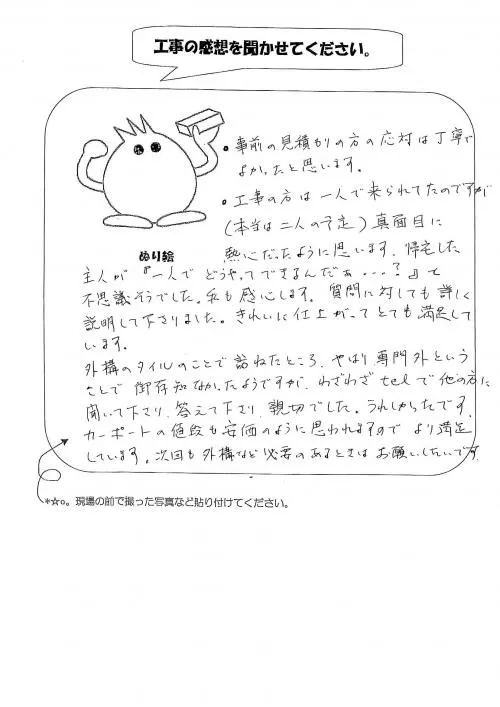 工事の感想を聞かせてください。
• 事前の見積もりの方の応対は丁寧で
よかったと思います。
• 工事の方は一人で来られてたのですが
(本当は二人の予定)真面目に
ぬり絵
熱心だったように思います。帰宅した
主人が『一人でどうやってできるんだぁ・・・?』と
不思議そうでした。私も感心します。質問に対しても詳しく
説明して下さりました。きれいに仕上がってとても満足して
います。
外構のタイルのことで訪ねたところ、やはり専門外という
ことで御存知なかったようですが、わざわざtelで他の方に
聞いて下さり、答えて下さり、親切でした。うれしかったです。
カーポートの値段も安価のように思われますのでより満足
しています。次回も外構など必要のあるときはお願いしたいです
*☆○。現場の前で撮った写真など貼り付けてください。